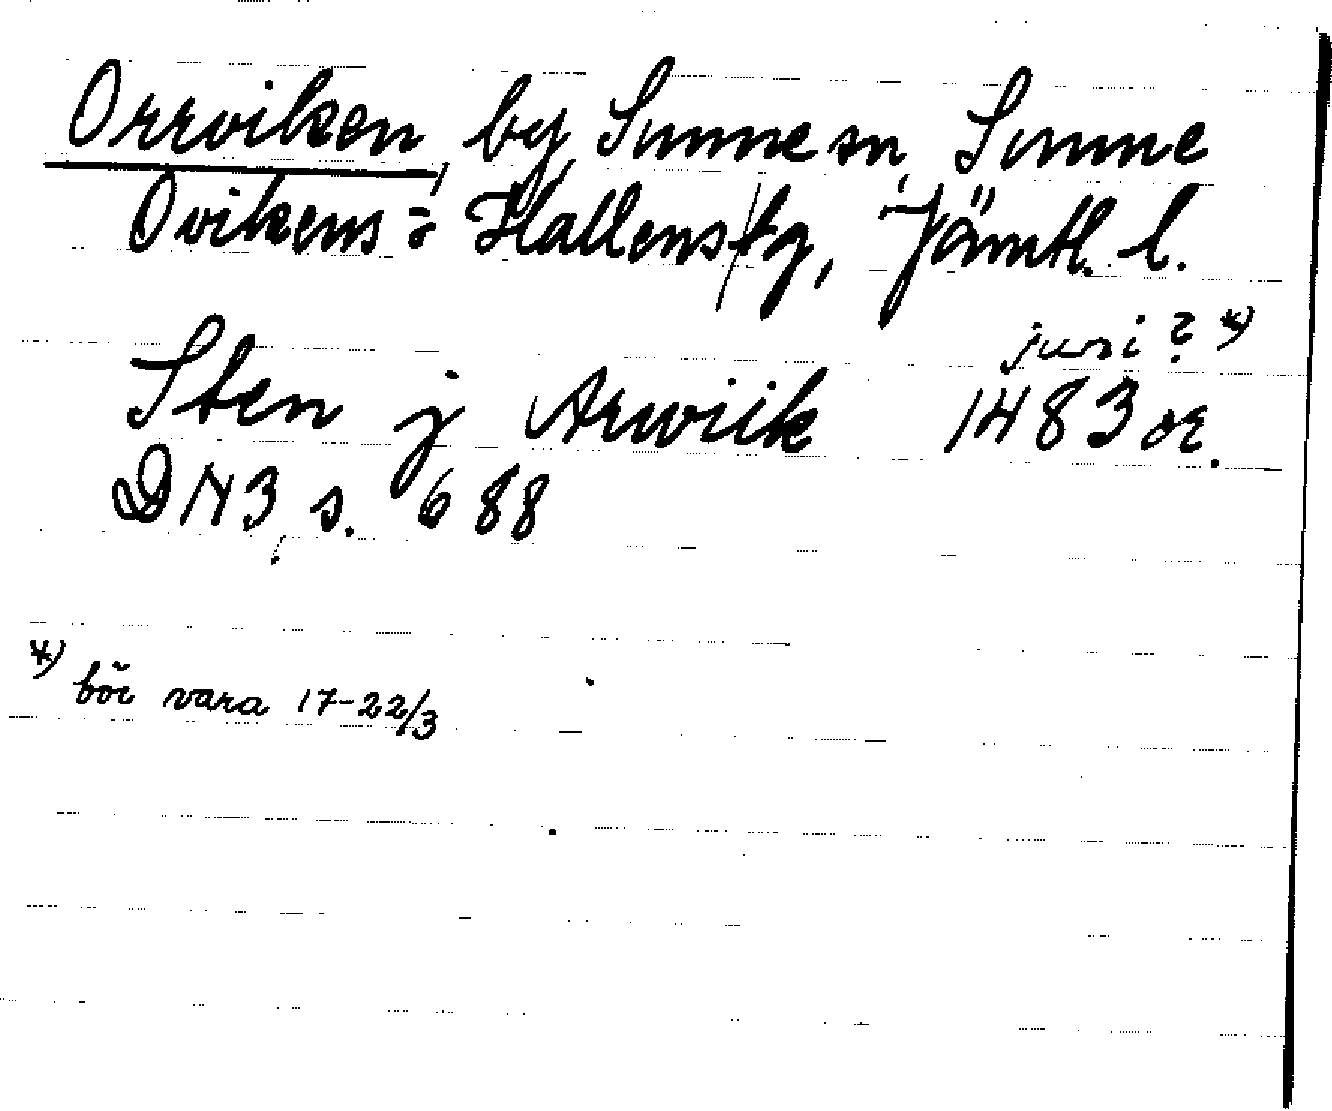 Orrviken, by, Sunne sn, Sunne
Ovikens = Hallens tg, Jämtl. l.
Sten j Arwiik juni ? *)
1483 or.
DN 3, s. 688
*) bör vara 17-22/3